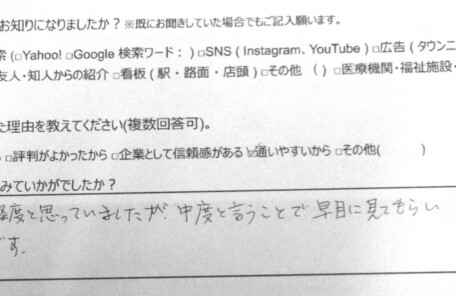 お知りになりましたか？※既にお聞きしていた場合でもご記入願います。
索（□Yahoo! □Google 検索ワード：　）□SNS（Instagram、YouTube）□広告（タウンニ
友人・知人からの紹介 □看板（駅・路面・店頭）□その他　（　）□医療機関・福祉施設・
た理由を教えてください(複数回答可)。
□評判がよかったから □企業として信頼感がある ☑通いやすいから □その他(　　　)
みていかがでしたか？
軽度と思っていましたが、中度と言うことで早目に見てもらい
です。